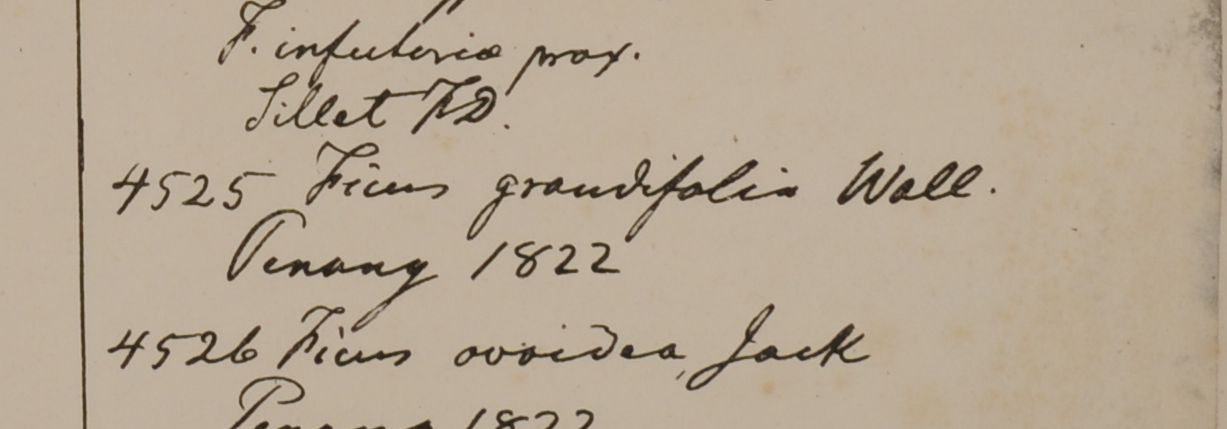 F. infectoriæ prox.
Sillet FD.
4525 Ficus grandifolia Wall.
Penang 1822
4526 Ficus ovoidea, Jack
Penang 1822